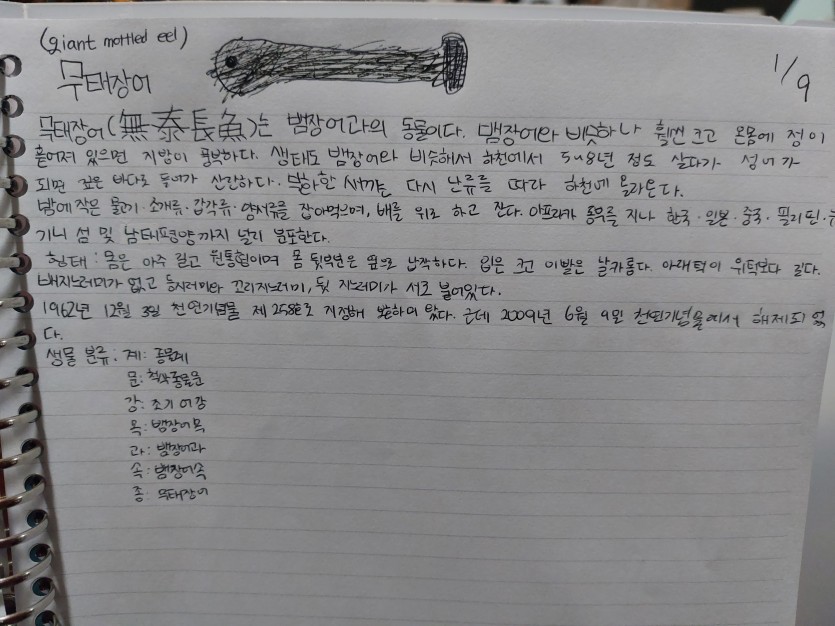 (giant mottled eel)
무태장어
1/9
무태장어(無泰長魚)는 뱀장어과의 동물이다. 뱀장어와 비슷하나 훨씬 크고 온몸에 점이
흩어져 있으면 지방이 풍부하다. 생태도 뱀장어와 비슷해서 하천에서 5~8년 정도 살다가 성어가
되면 깊은 바다로 들어가 산란한다. 부화한 새끼는 다시 난류를 따라 하천에 올라온다.
밤에 작은 물고기·조개류·갑각류·양서류를 잡아먹으며, 배를 위로 하고 잔다. 아프리카 동부를 지나 한국·일본·중국·필리핀·뉴
기니 섬 및 남태평양까지 널리 분포한다.
형태: 몸은 아주 길고 원통형이며 몸 뒷부분은 옆으로 납작하다. 입은 크고 이빨은 날카롭다. 아래턱이 위턱보다 길다.
배지느러미가 없고 등지느러미와 꼬리지느러미, 뒷지느러미가 서로 붙어있다.
1962년 12월 3일 천연기념물 제258호로 지정해 보호하여 왔다. 근데 2009년 6월 9일 천연기념물에서 해제되었
다.
생물 분류: 계: 동물계
문: 척삭동물문
강: 조기어강
목: 뱀장어목
과: 뱀장어과
속: 뱀장어속
종: 무태장어